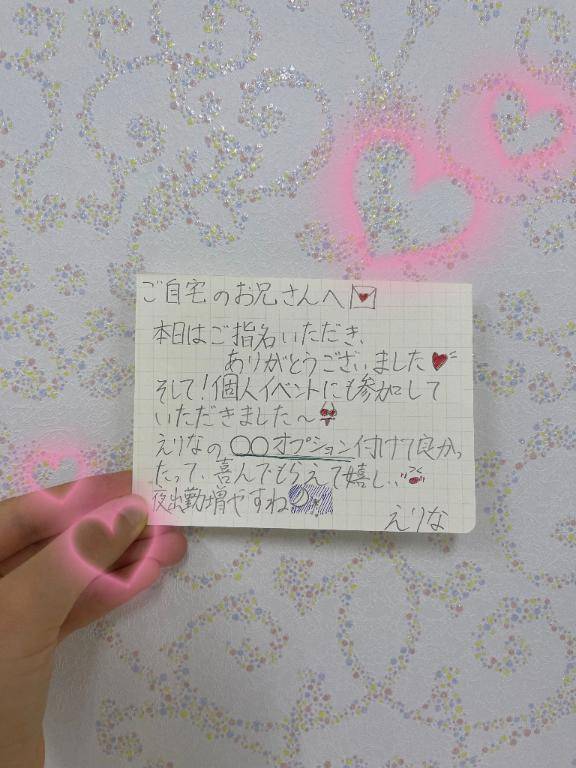 ご自宅のお兄さんへ
本日はご指名いただき、
ありがとうございました
そして!個人イベントにも参加して
いただきました〜
えりなの〇〇オプション付けて良かっ
たって、喜んでもらえて嬉しい
夜出勤増やすね
えりな